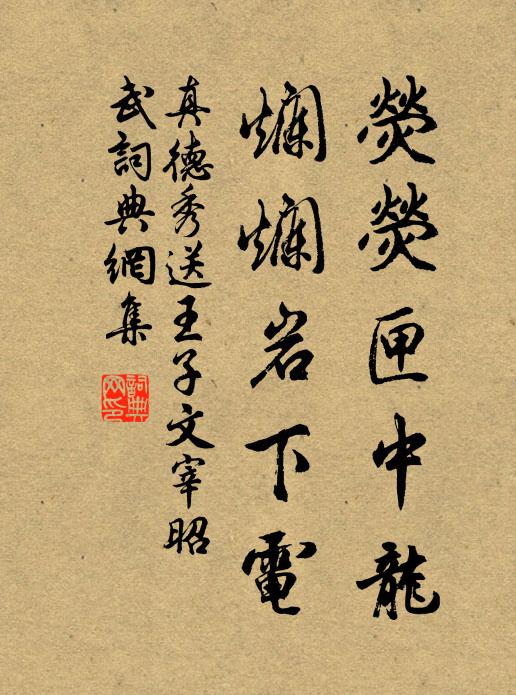 熒熒匣中龍
爛爛岩下電
真德秀送王子文宰昭
武詞典網集
詞典
网印